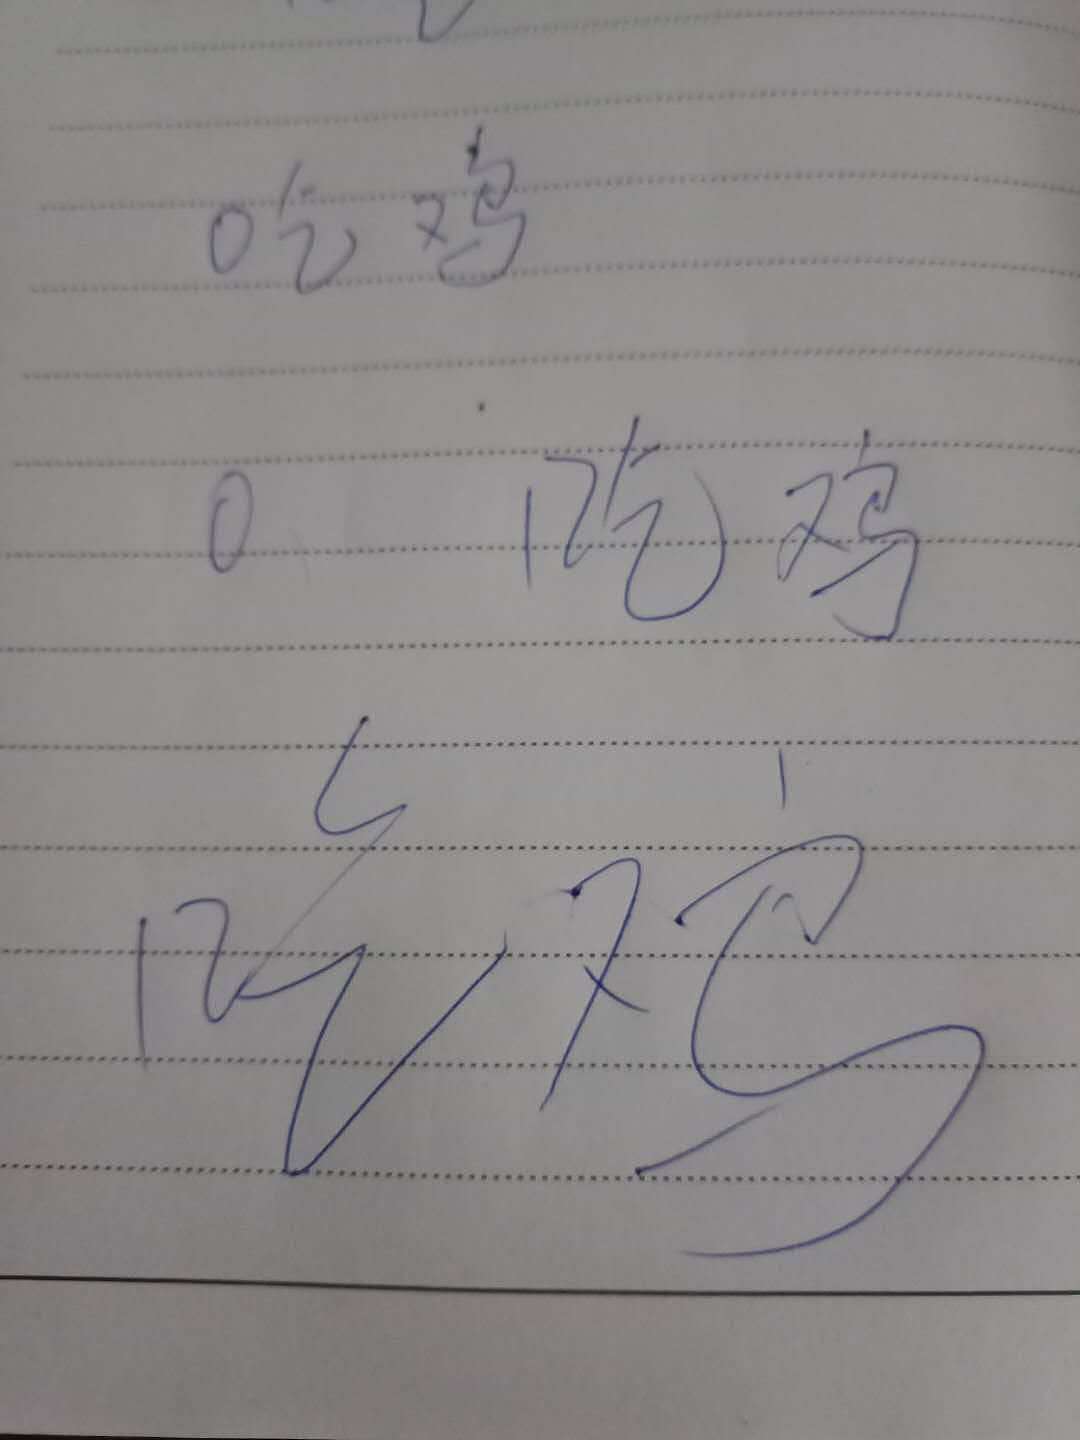 吃鸡
0 吃鸡
吃鸡